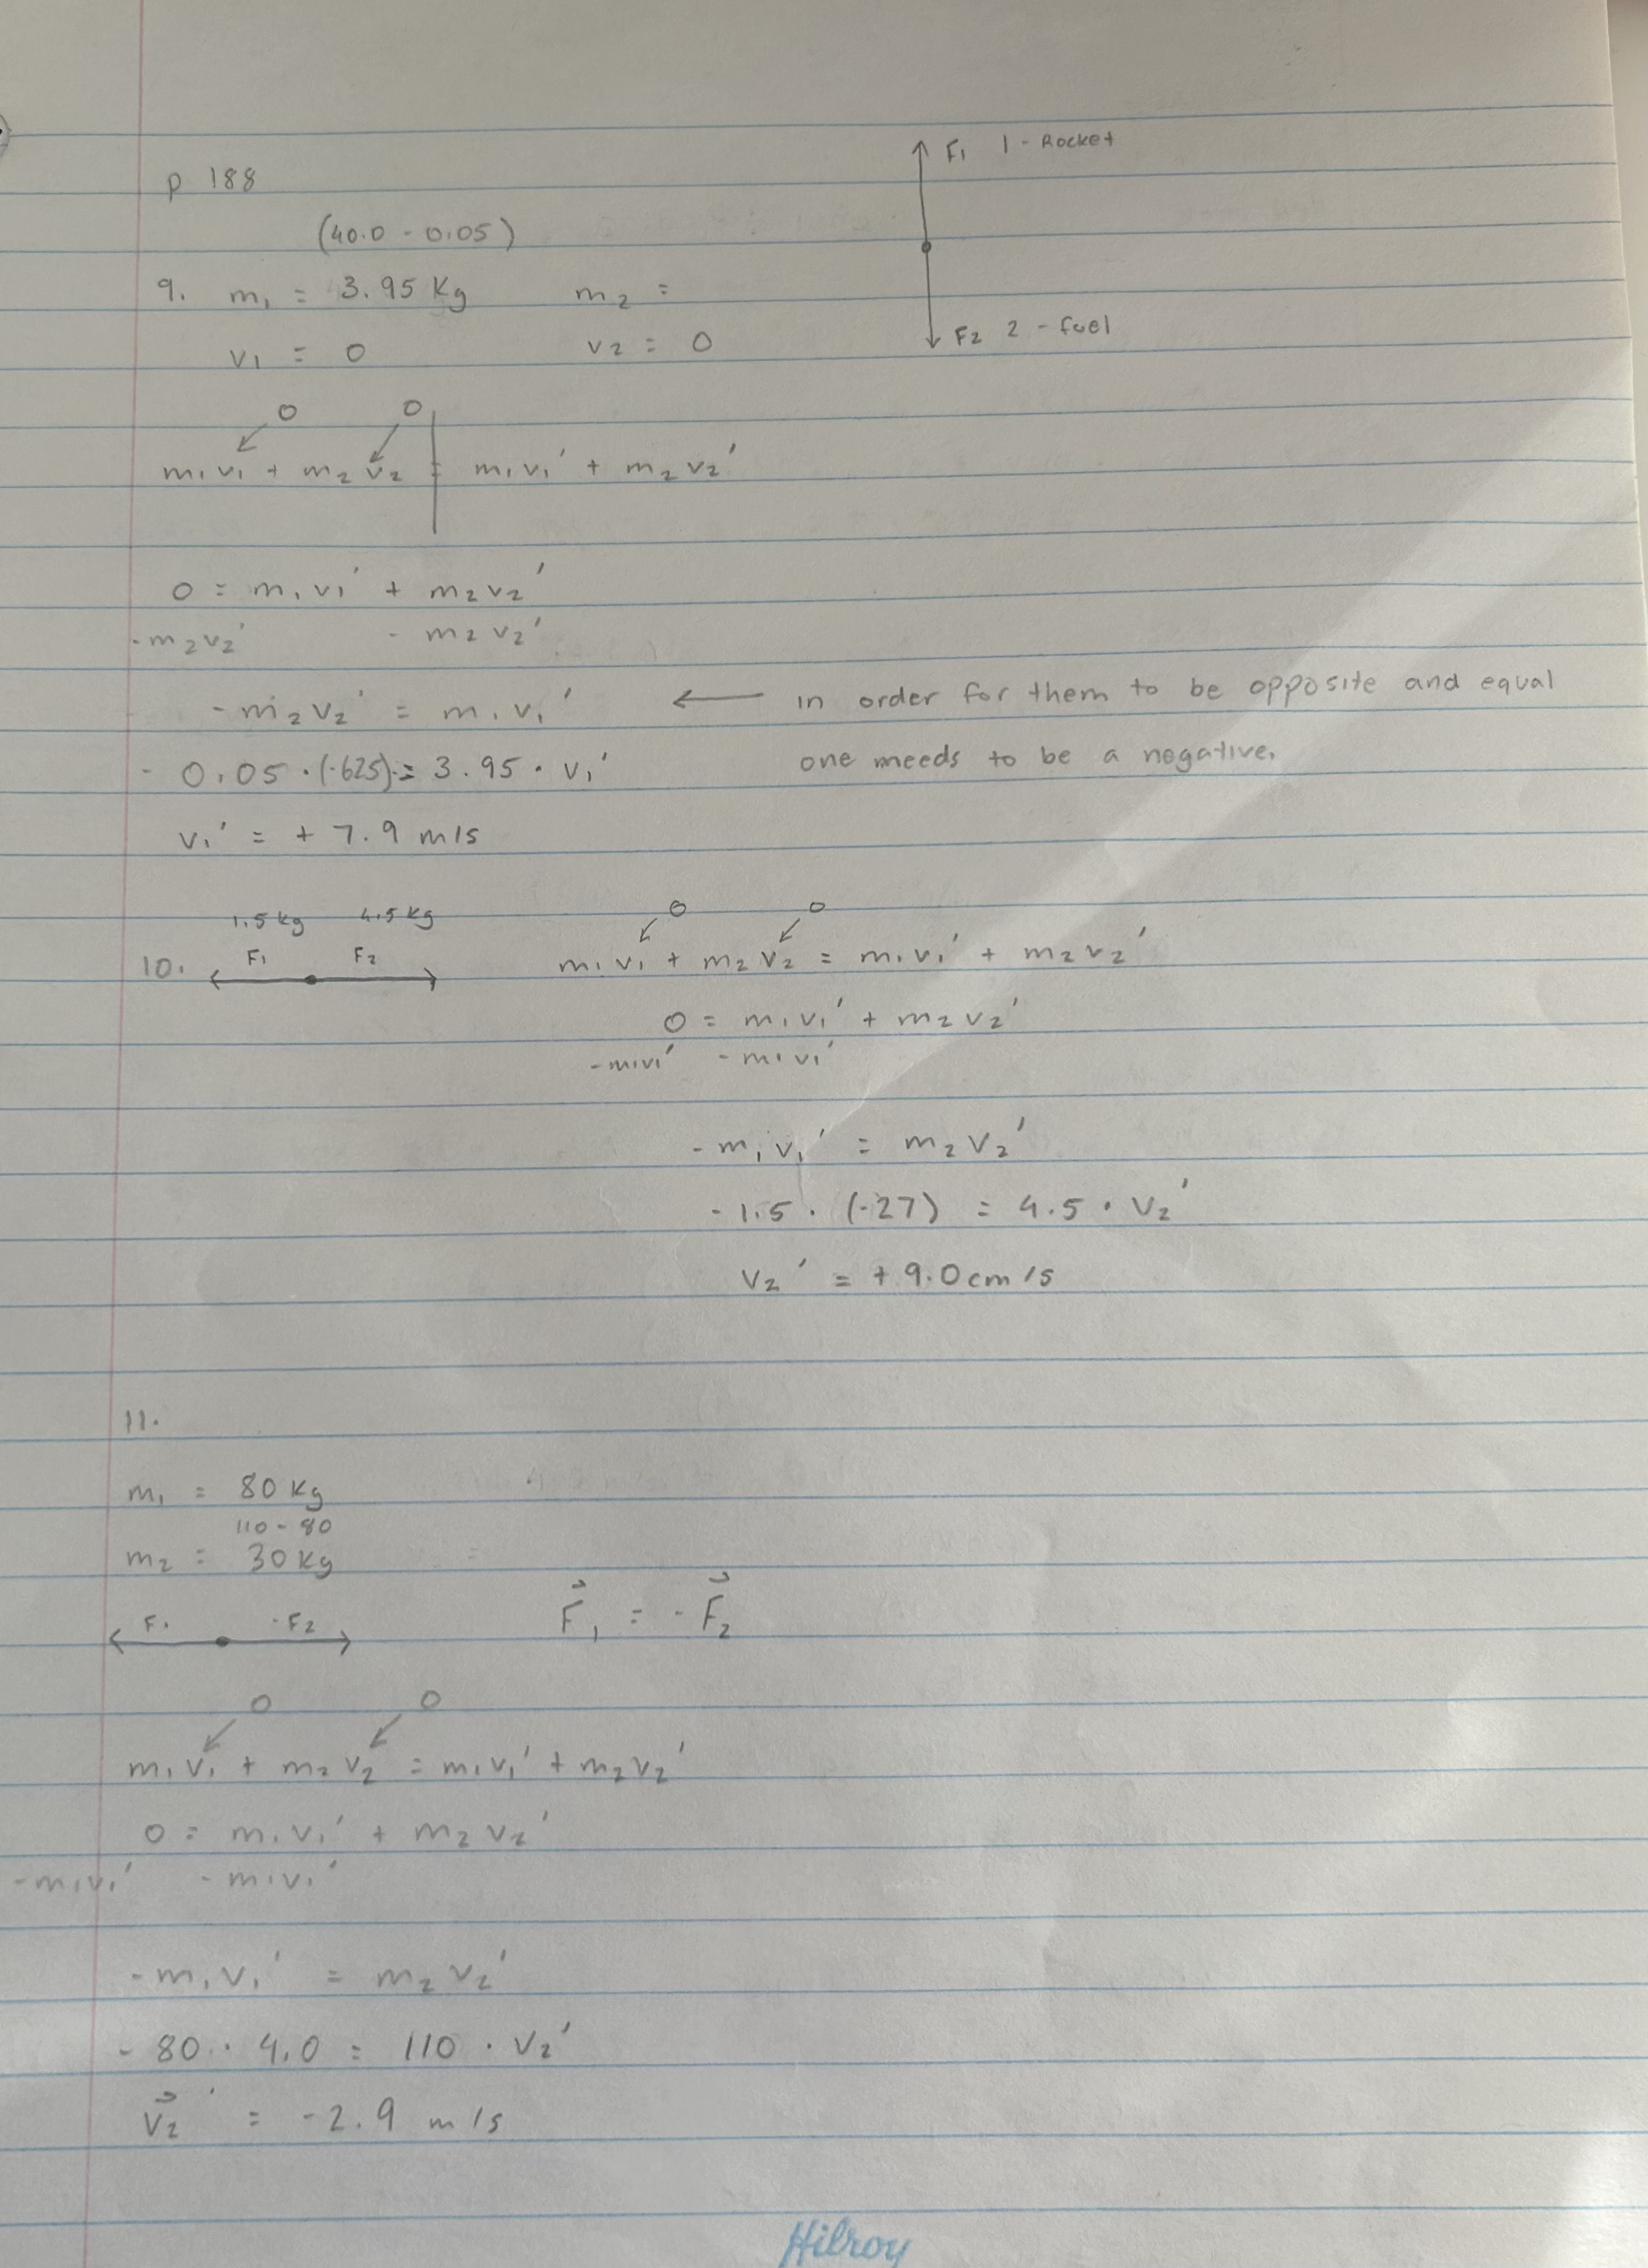 F₁ 1 - Rocket
p 188
(40.0 - 0.05)
9. m₁ = 3.95 Kg m₂ =
F₂ 2 - fuel
v₁ = 0 v₂ = 0
0 0
m₁v₁ + m₂v₂ = m₁v₁' + m₂v₂'
0 = m₁v₁' + m₂v₂'
-m₂v₂' - m₂v₂'
-m₂v₂' = m₁v₁' ← in order for them to be opposite and equal
- 0.05 · (-625) = 3.95 · v₁' one needs to be a negative.
v₁' = + 7.9 m/s
1.5 kg 4.5 kg 0 0
10. F₁ F₂ m₁v₁ + m₂v₂ = m₁v₁' + m₂v₂'
0 = m₁v₁' + m₂v₂'
-m₁v₁' - m₁v₁'
-m₁v₁' = m₂v₂'
- 1.5 · (-27) = 4.5 · v₂'
v₂' = + 9.0 cm/s
11.
m₁ = 80 Kg
110 - 80
m₂ = 30 Kg
F₁ -F₂ F⃗₁ = - F⃗₂
0 0
m₁v₁ + m₂v₂ = m₁v₁' + m₂v₂'
0 = m₁v₁' + m₂v₂'
-m₁v₁' - m₁v₁'
-m₁v₁' = m₂v₂'
- 80 · 4.0 = 110 · v₂'
v⃗₂' = -2.9 m/s
Hilroy